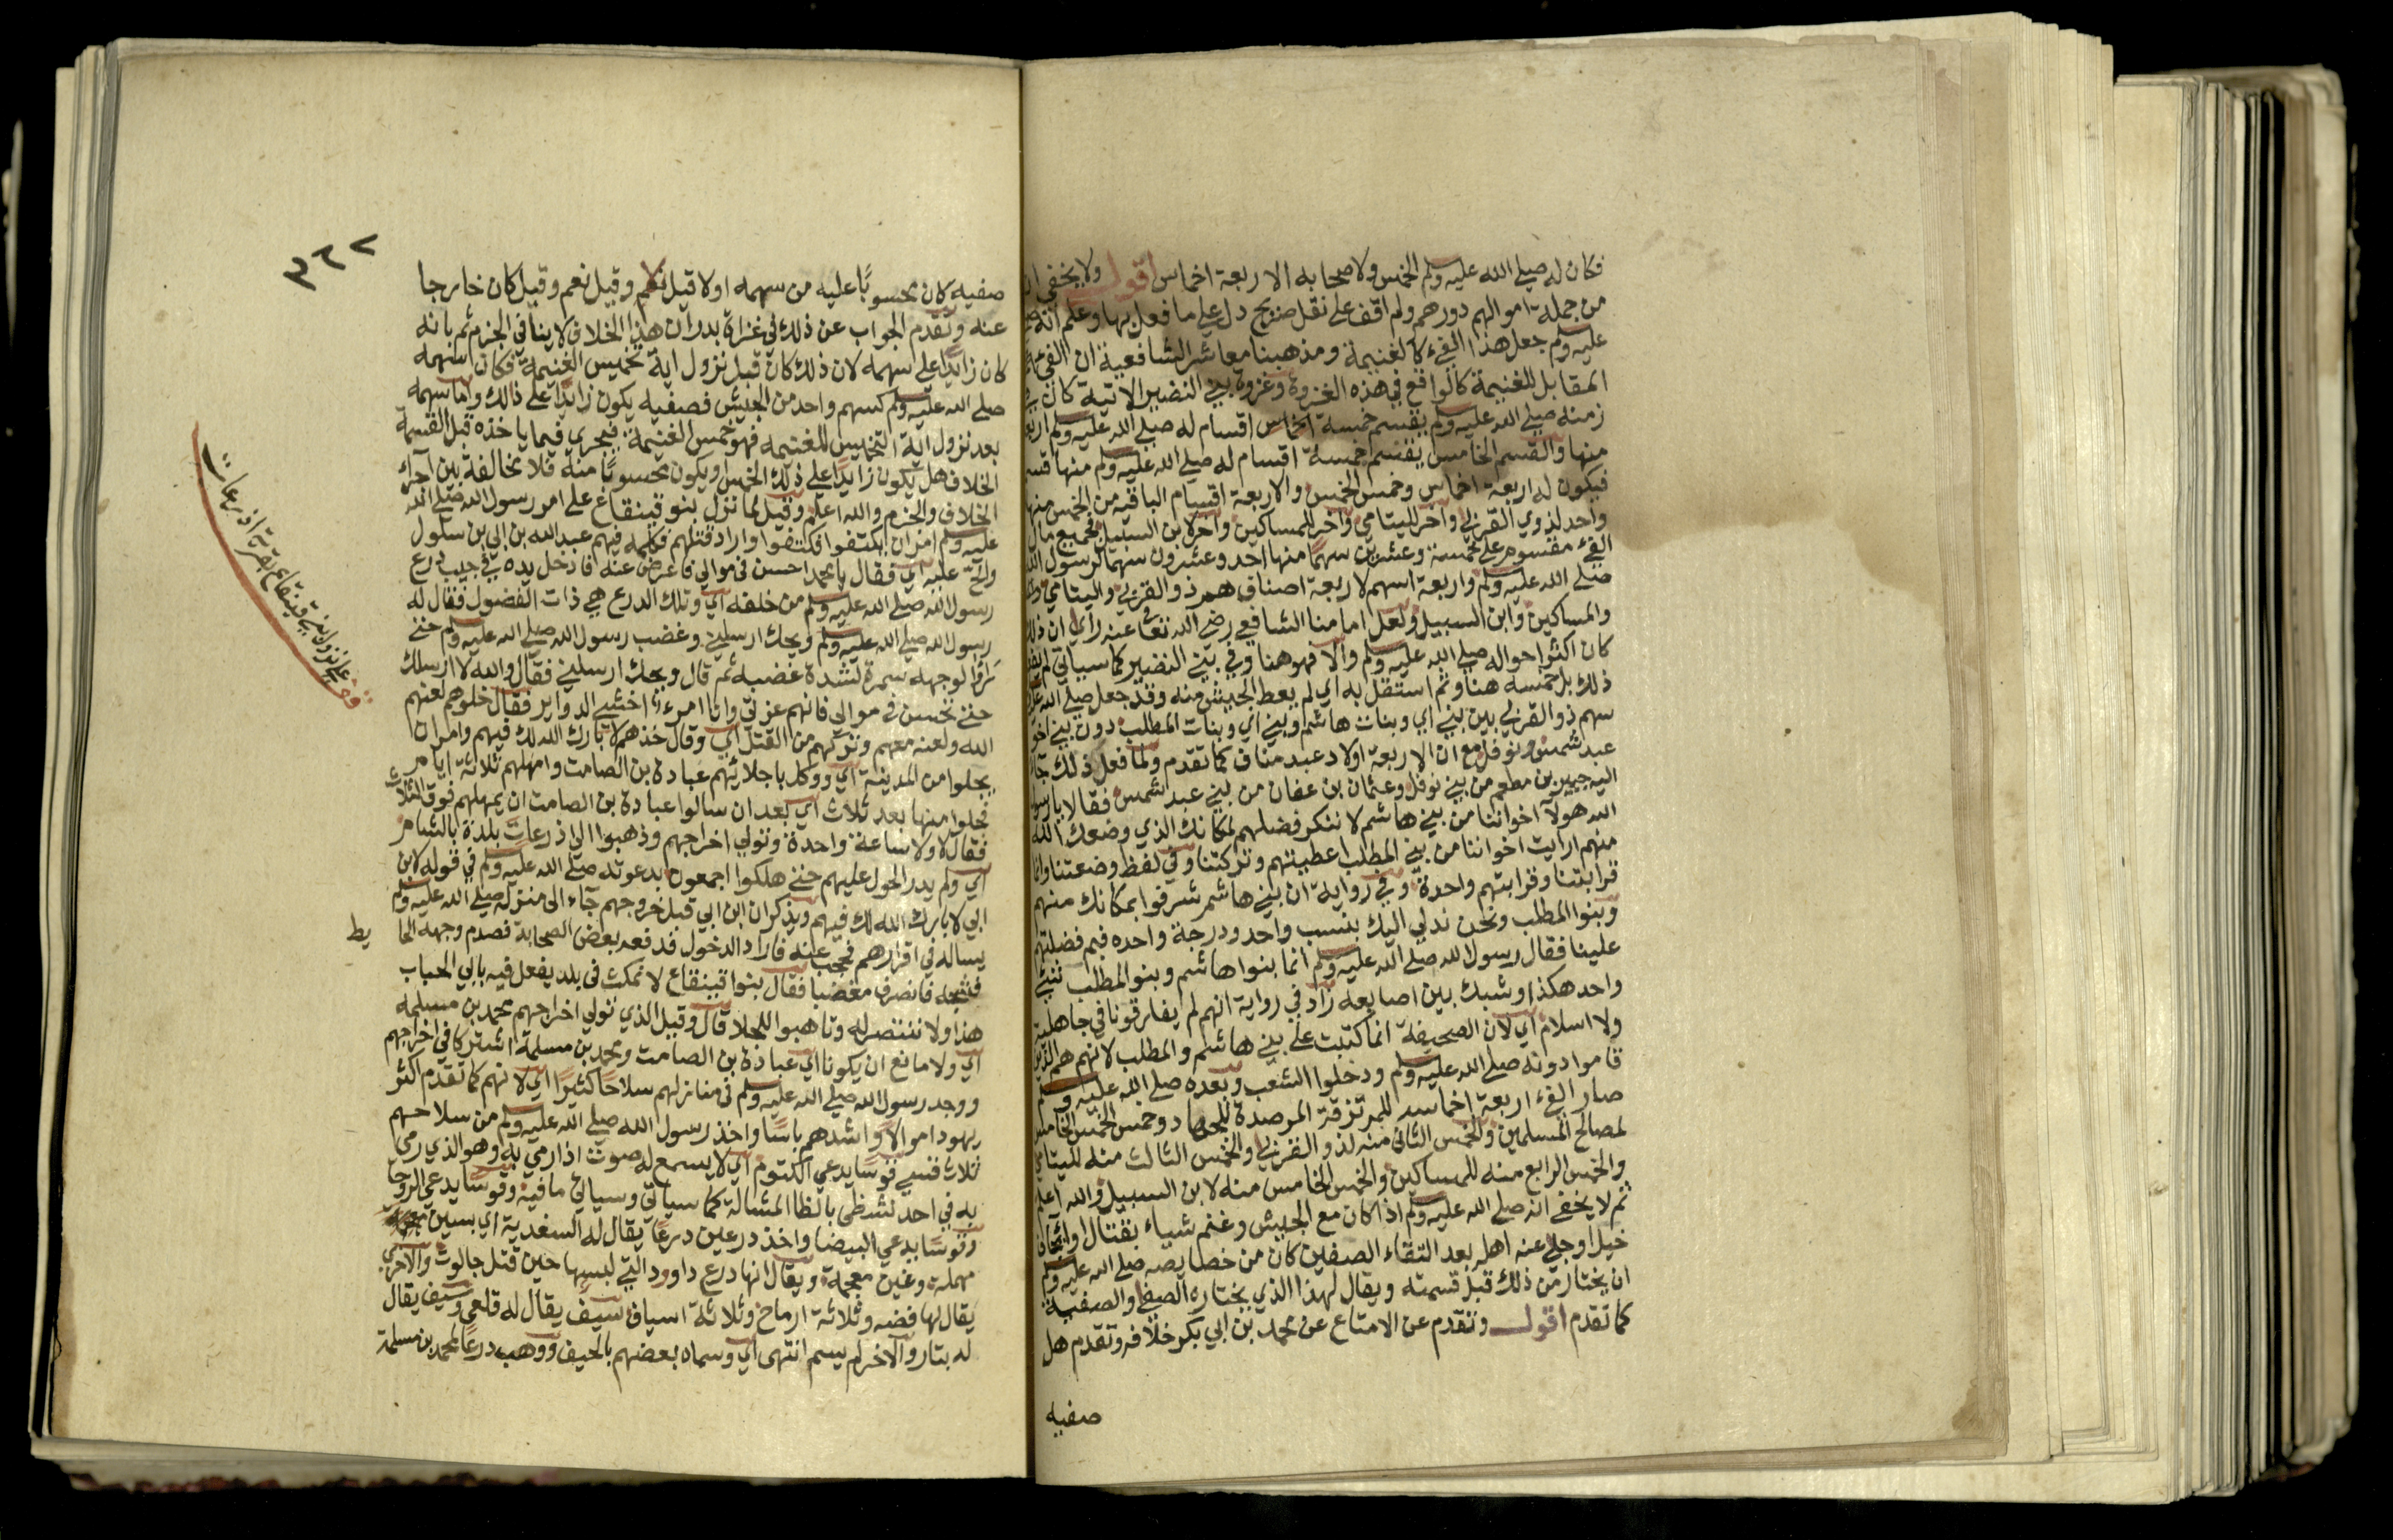 فكان له صلى الله عليه وسلم الخمس ولاصحابه الاربعة اخماس اقول ولا يخفى ان
من جملة اموالهم دورهم ولم اقف على نقل صريح دل على ما فعل بها وعلم انه صلى
عليه وسلم جعل هذا الفيء كالغنيمة ومذهبنا معاشر الشافعية ان الفيء
المقابل للغنيمة كالواقع في هذه الغزوة وغزوة بني النضير الاتية كان في
زمنه صلى الله عليه وسلم يقسم خمسة اخماس اقسام له صلى الله عليه وسلم اربعة
منها والقسم الخامس يقسم خمسة اقسام له صلى الله عليه وسلم منها قسم
فيكون له اربعة اخماس وخمس الخمس والاربعة اقسام الباقيه من الخمس منها
واحد لذوي القربي وآخر لليتامي وآخر للمساكين وآخر لابن السبيل فجميع مال
الفيء مقسوم على خمسة وعشرين سهما منها احد وعشرون سهما لرسول الله
صلى الله عليه وسلم واربعة اسهم لاربعة اصناف هم ذو القربي واليتامي
والمساكين وابن السبيل ولعل امامنا الشافعي رضي الله تعالى عنه رأى ان ذلك
كان اكثر احواله صلى الله عليه وسلم والا فهو هنا وفي بني النضير كما سياتي لم يفعل
ذلك بل خمسه هنا وثم استقل به اي لم يعط الجيش منه وقد جعل صلى الله عليه
سهم ذو القربي بين بني اي وبنات هاشم وبني اي وبنات المطلب دون بني اخويهما
عبد شمس ونوفل مع ان الاربعة اولاد عبد مناف كما تقدم ولما فعل ذلك جآء
اليه جبير بن مطعم من بني نوفل وعثمان بن عفان من بني عبد شمس فقالا يا رسول
الله هولآ اخواننا من بني هاشم لا ننكر فضلهم لمكانك الذي وضعك الله
منهم ارايت اخواننا من بني المطلب اعطيتهم وتركتنا وفي لفظ وضعتنا وانما
قرابتنا وقرابتهم واحدة وفي رواية ان بني هاشم شرفوا بمكانك منهم
وبنوا المطلب ونحن ندلي اليك بنسب واحد ودرجة واحده فبم فضلتهم
علينا فقال رسول الله صلى الله عليه وسلم انما بنوا هاشم وبنوا المطلب شيئ
واحد هكذا وشبك بين اصابعه زاد في رواية انهم لم يفارقونا في جاهلية
ولا اسلام اي لان الصحيفة انما كتبت على بني هاشم والمطلب لانهم هم الذين
قاموا دونه صلى الله عليه وسلم ودخلوا الشعب وبعده صلى الله عليه وسلم
صار الفيء اربعة اخماسه للمرتزقة المرصدة للجهاد وخمس الخمس الخامس
لمصالح المسلمين والخمس الثاني منه لذو القربي والخمس الثالث منه لليتامي
والخمس الرابع منه للمساكين والخمس الخامس منه لابن السبيل والله اعلم
ثم لا يخفى انه صلى الله عليه وسلم اذا كان مع الجيش وغنم شياء بقتال او ايجاف
خيل او جلى عنه اهله بعد التقاء الصفين كان من خصايصه صلى الله عليه وسلم
ان يختار من ذلك قبل قسمته ويقال لهذا الذي يختاره الصفي والصفية
كما تقدم اقول وتقدم عن الامتاع عن محمد بن ابي بكر خلافه وتقدم هل
صفيه
٣٦٢
صفيه كان محسوبا عليه من سهمه اولا قيل نعم وقيل كان خارجا
عنه وتقدم الجواب عن ذلك في غزاة بدر ان هذا الخلاف لا ينافي الجزم ثم بانه
كان زايدا على سهمه لان ذلك كان قبل نزول اية تخميس الغنيمة فكان سهمه
صلى الله عليه وسلم كسهم واحد من الجيش فصفيه يكون زايدا على ذالك واما سهمه
بعد نزول اية التخميس للغنيمه فهو خمس الغنيمة فيجري فيما ياخذه قبل القسمة
الخلاف هل يكون زايدا على ذلك الخمس او يكون محسوبا منه فلا مخالفة بين آجراء
الخلاف والجزم والله اعلم وقيل لما نزل بنو قينقاع على امر رسول الله صلى الله
عليه وسلم امر ان يكتفوا فكتفوا واراد قتلهم فكلمه فيهم عبد الله بن ابي بن سلول
والح عليه اي فقال يا محمد احسن في موالي فاعرض عنه فادخل يده في جيب درع
رسول الله صلى الله عليه وسلم من خلفه اي وتلك الدرع هي ذات الفضول فقال له
رسول الله صلى الله عليه وسلم ويحك ارسلني وغضب رسول الله صلى الله عليه وسلم حتى
راوا لوجهه سمرة لشدة غضبه ثم قال ويحك ارسلني فقال والله لا ارسلك
حتى تحسن في موالي فانهم عزتي وانا امرء اخشى الدواير فقال خلوهم لعنهم
الله ولعنه معهم وتركهم من القتل اي وقال خذهم لا بارك الله لك فيهم وامر ان
يجلوا من المدينة اي ووكل باجلائهم عبادة بن الصامت وامهلهم ثلاثة ايام
فجلوا منها بعد ثلاث اي بعد ان سالوا عبادة بن الصامت ان يمهلهم فوق الثلاث
فقال لا ولا ساعة واحدة وتولي اخراجهم وذهبوا الي اذرعات بلدة بالشام
اي ولم يدر الحول عليهم حتى هلكوا اجمعون بدعوته صلى الله عليه وسلم في قوله لابن
ابي لا بارك الله لك فيهم ويذكر ان ابن ابي قبل خروجهم جآء الى منزله صلى الله عليه وسلم
يساله في اقرارهم فحجب عنه فاراد الدخول فدفعه بعض الصحابة فصدم وجهه الحا
يط
فشجه فانصرف مغضبا فقال بنوا قينقاع لا نمكث في بلد يفعل فيه بابي الحباب
هذا ولا ننتصر له وتاهبوا للجلا قال وقيل الذي تولي اخراجهم محمد بن مسلمه
اي ولا مانع ان يكونا اي عبادة بن الصامت ومحمد بن مسلمة اشتركا في اخراجهم
ووجد رسول الله صلى الله عليه وسلم في منازلهم سلاحا كثيرا اي لانهم كما تقدم اكثر
يهود اموالا واشدهم باسا واخذ رسول الله صلى الله عليه وسلم من سلاحهم
ثلاث قسي قوسا يدعي الكتوم اي لا يسمع له صوت اذا رمي به وهو الذي رمى
به في احد لتشظى بالظا المشالة كما سياتي وسياتي ما فيه وقوسا يدعي الروحا
وقوسا يدعي البيضا واخذ درعين درعا يقال له السغدية اي بسين
مهملة وغين معجمة ويقال انها درع داوود التي لبسها حين قتل جالوت والاخرى
يقال لها فضه وثلاثة ارماح وثلاثة اسياف سيف يقال له قلعي وسيف يقال
له بتار والآخر لم يسم انتهى اي وسماه بعضهم بالحيف ووهب درعا لمحمد بن مسلمة
قف على نزول بني قينقاع بقرية اذرعات